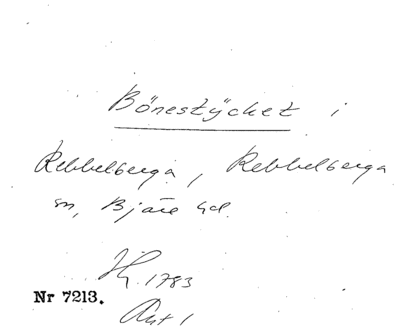 Bönestycket i
Rebbelberga, Rebbelberga
sn, Bjäre hd.
1783
Nr 7213.
Akt 1